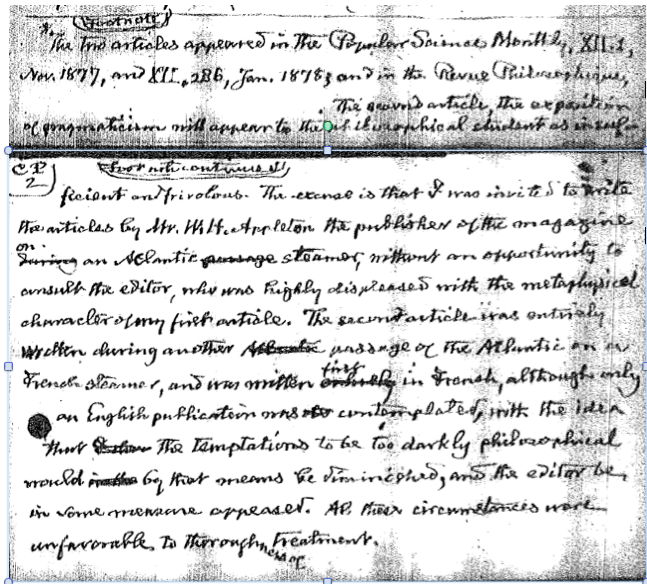 (Footnote)
* The two articles appeared in the Popular Science Monthly, XII.1,
Nov. 1877, and XII, 286, Jan. 1878; and in the Revue Philosophique,
The second article, the exposition
of pragmaticism will appear to the philosophical student as insuf-
CP 2 (Footnote continued)
ficient and frivolous. The excuse is that I was invited to write
the articles by Mr. W.H. Appleton the publisher of the magazine
on
during an Atlantic passage steamer, without an opportunity to
consult the editor, who was highly displeased with the metaphysical
character of my first article. The second article was entirely
written during another Atlantic passage of the Atlantic on a
first
French steamer, and was written entirely in French, although only
an English publication was contemplated, with the idea
that the temptations to be too darkly philosophical
would by that means be diminished, and the editor be
in some measure appeased. All these circumstances were
unfavorable to thoroughness of treatment.